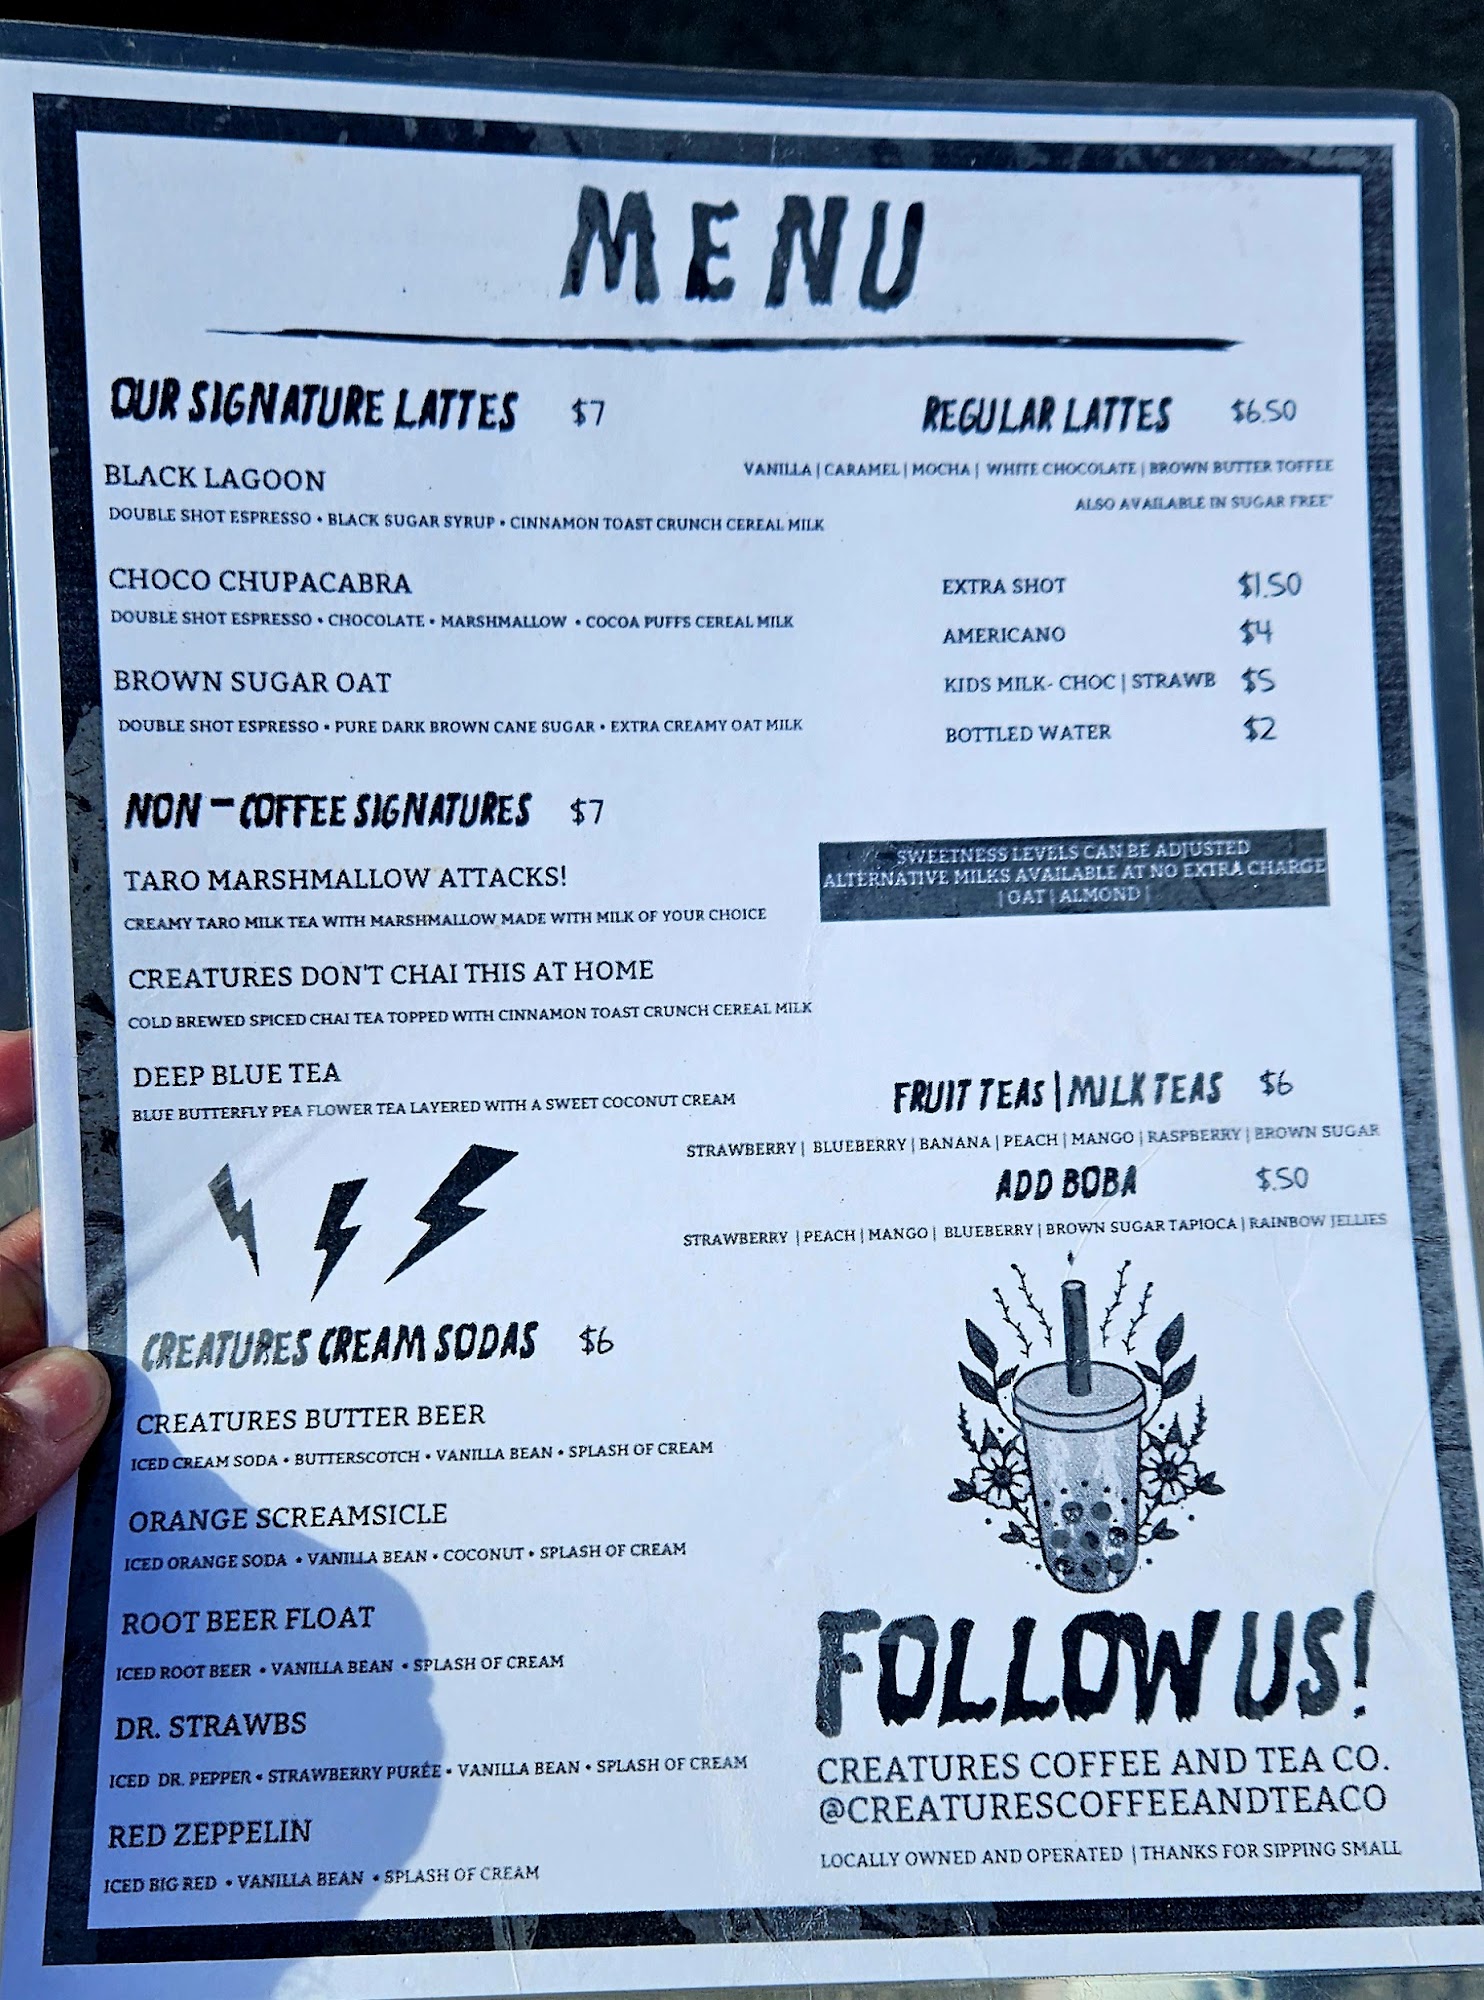 MENU
OUR SIGNATURE LATTES $7
BLACK LAGOON
DOUBLE SHOT ESPRESSO • BLACK SUGAR SYRUP • CINNAMON TOAST CRUNCH CEREAL MILK
CHOCO CHUPACABRA
DOUBLE SHOT ESPRESSO • CHOCOLATE • MARSHMALLOW • COCOA PUFFS CEREAL MILK
BROWN SUGAR OAT
DOUBLE SHOT ESPRESSO • PURE DARK BROWN CANE SUGAR • EXTRA CREAMY OAT MILK
NON-COFFEE SIGNATURES $7
TARO MARSHMALLOW ATTACKS!
CREAMY TARO MILK TEA WITH MARSHMALLOW MADE WITH MILK OF YOUR CHOICE
CREATURES DON'T CHAI THIS AT HOME
COLD BREWED SPICED CHAI TEA TOPPED WITH CINNAMON TOAST CRUNCH CEREAL MILK
DEEP BLUE TEA
BLUE BUTTERFLY PEA FLOWER TEA LAYERED WITH A SWEET COCONUT CREAM
CREATURES CREAM SODAS $6
CREATURES BUTTER BEER
ICED CREAM SODA • BUTTERSCOTCH • VANILLA BEAN • SPLASH OF CREAM
ORANGE SCREAMSICLE
ICED ORANGE SODA • VANILLA BEAN • COCONUT • SPLASH OF CREAM
ROOT BEER FLOAT
ICED ROOT BEER • VANILLA BEAN • SPLASH OF CREAM
DR. STRAWBS
ICED DR. PEPPER • STRAWBERRY PURÉE • VANILLA BEAN • SPLASH OF CREAM
RED ZEPPELIN
ICED BIG RED • VANILLA BEAN • SPLASH OF CREAM
REGULAR LATTES $6.50
VANILLA | CARAMEL | MOCHA | WHITE CHOCOLATE | BROWN BUTTER TOFFEE
ALSO AVAILABLE IN SUGAR FREE*
EXTRA SHOT $1.50
AMERICANO $4
KIDS MILK- CHOC | STRAWB $5
BOTTLED WATER $2
SWEETNESS LEVELS CAN BE ADJUSTED
ALTERNATIVE MILKS AVAILABLE AT NO EXTRA CHARGE
| OAT | ALMOND |
FRUIT TEAS | MILK TEAS $6
STRAWBERRY | BLUEBERRY | BANANA | PEACH | MANGO | RASPBERRY | BROWN SUGAR
ADD BOBA $.50
STRAWBERRY | PEACH | MANGO | BLUEBERRY | BROWN SUGAR TAPIOCA | RAINBOW JELLIES
FOLLOW US!
CREATURES COFFEE AND TEA CO.
@CREATURESCOFFEEANDTEACO
LOCALLY OWNED AND OPERATED | THANKS FOR SIPPING SMALL